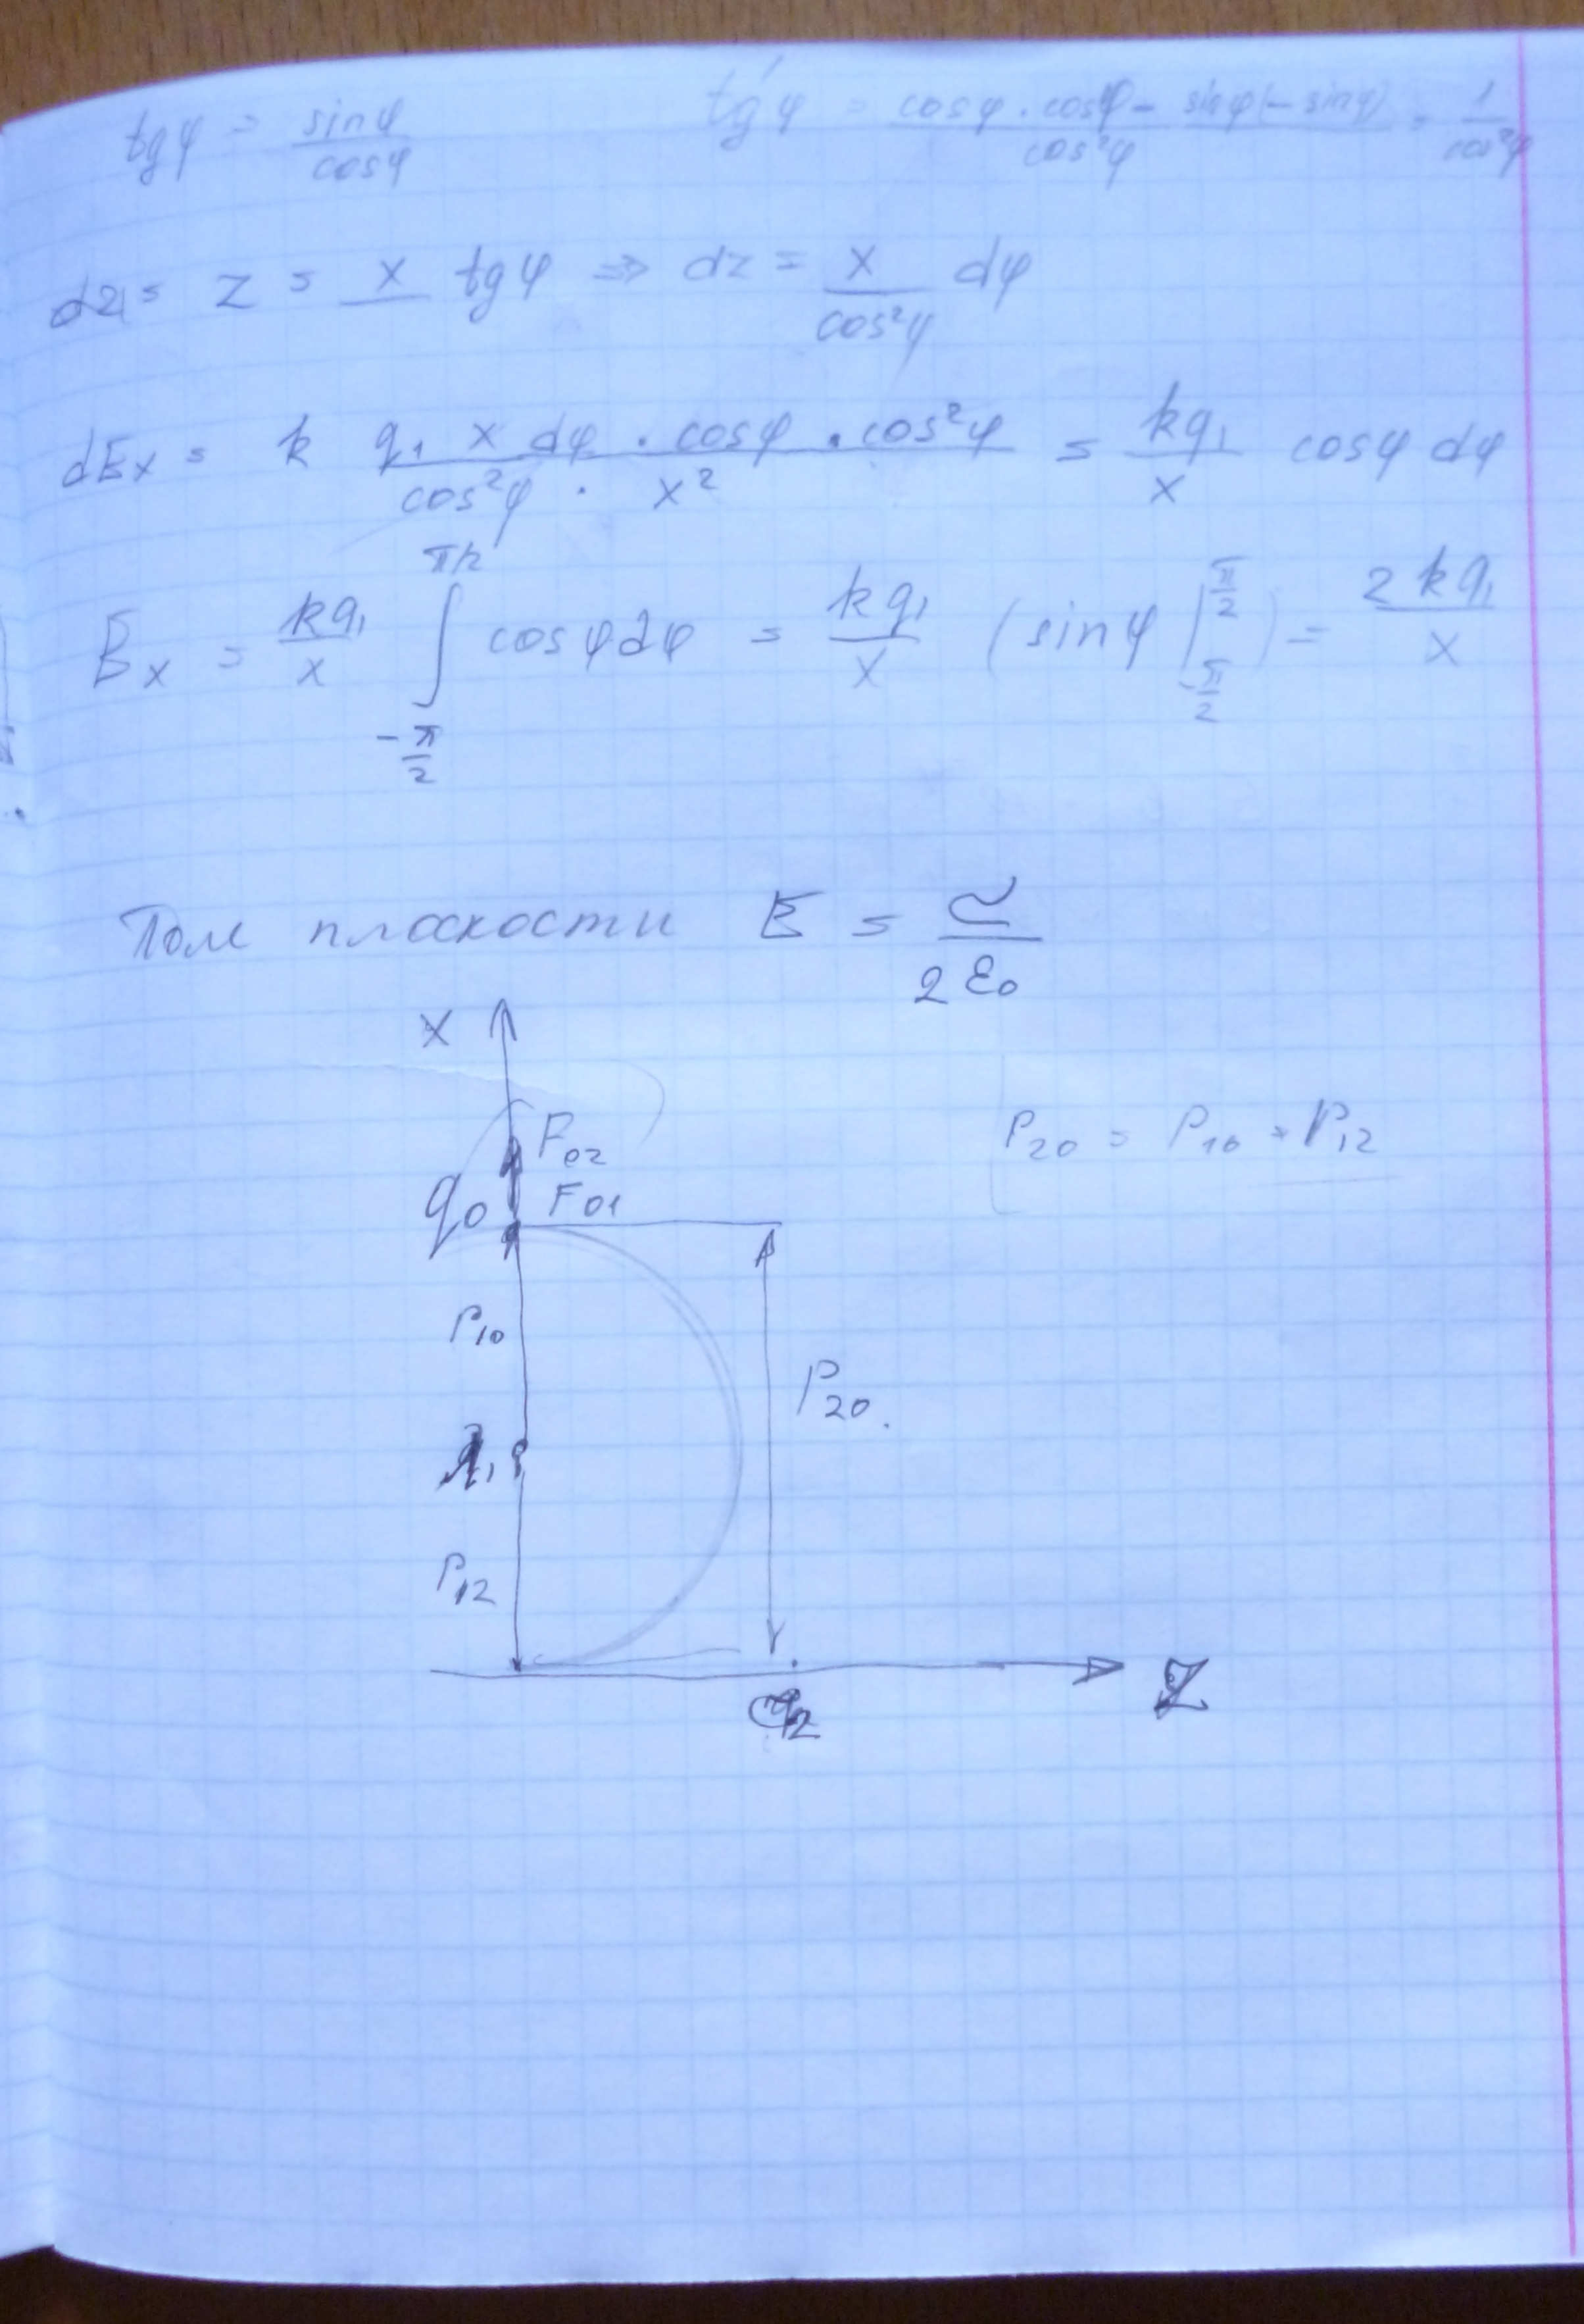 tgφ = sinφ / cosφ    tg'φ = (cosφ · cosφ - sinφ(-sinφ)) / cos²φ = 1 / cos²φ
dz₁ = z = x tgφ ⇒ dz = x / cos²φ dφ
dEx = k q₁ x dφ · cosφ · cos²φ / (cos²φ · x²) = kq₁ / x cosφ dφ
Ex = kq₁ / x ∫ from -π/2 to π/2 cosφdφ = kq₁ / x (sinφ | from -π/2 to π/2) = 2kq₁ / x
Поле плоскости E = σ / 2ε₀
x
F₀₂
q₀ F₀₁
r₂₀ = r₁₀ + r₁₂
r₁₀
r₂₀
r₁₂
z
q₂